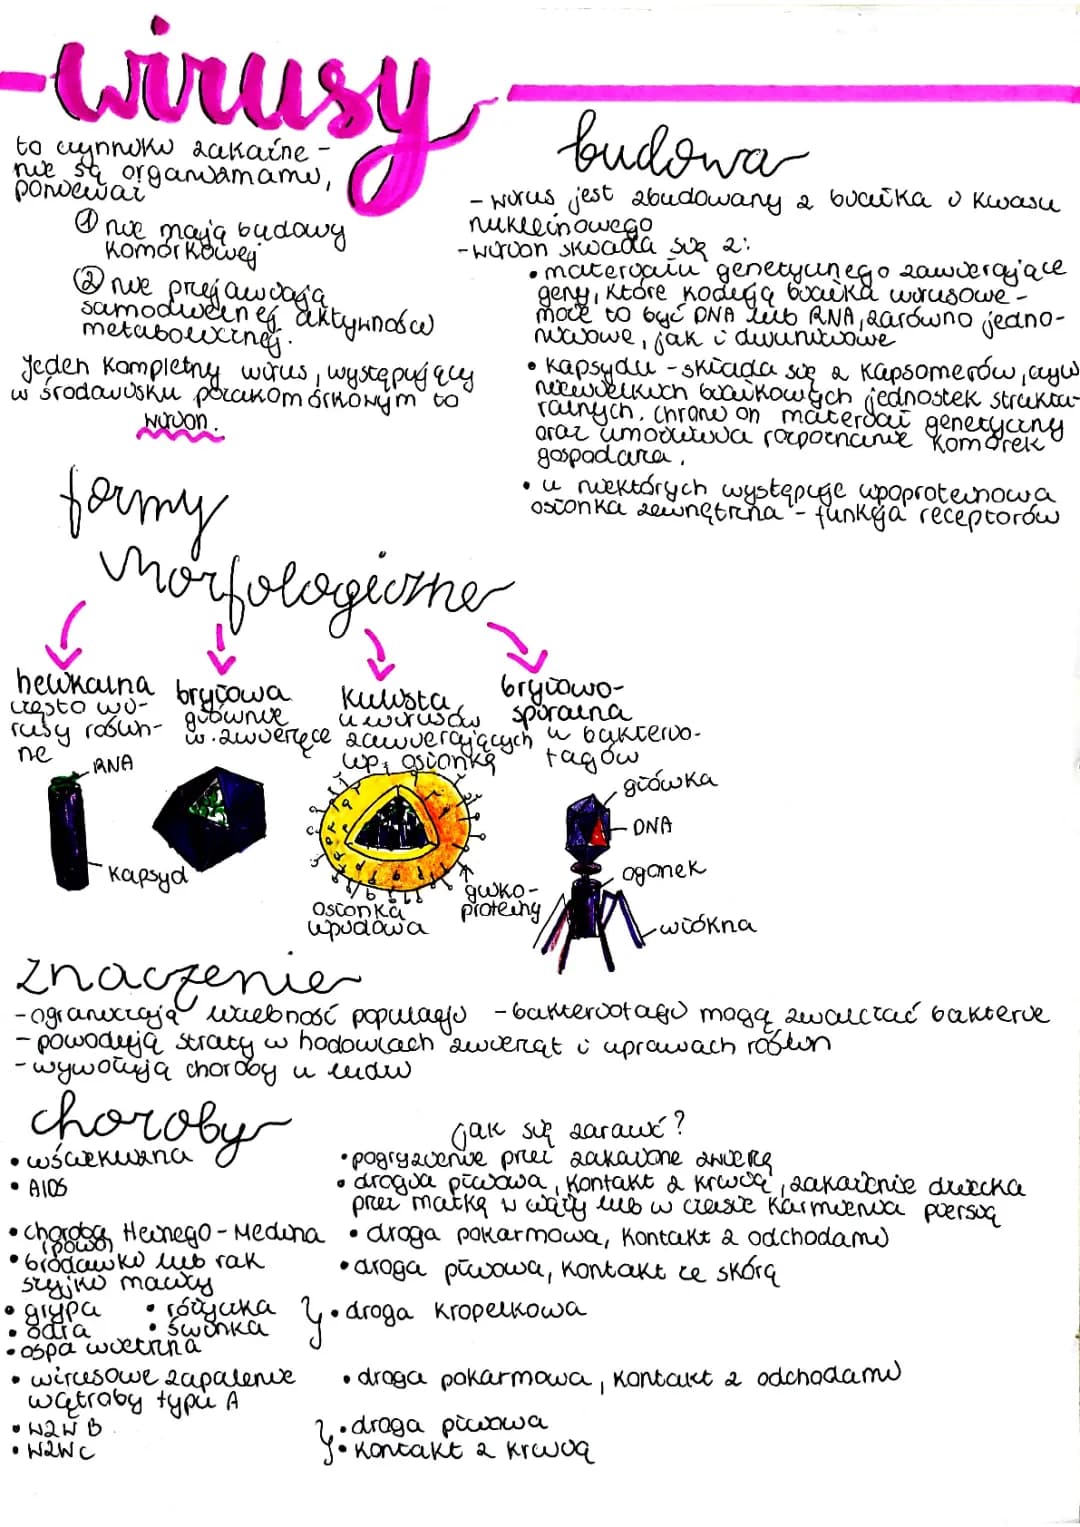 -wirusy
to czynniki zakaźne -
nie są organizmami,
ponieważ
① nie mają budowy
komórkowej
② nie przejawiają
samodzielnej aktywności
metabolicznej.
Jeden kompletny wirus, występujący
w środowisku pozakomórkowym to
wirion.
budowa
- wirus jest zbudowany z białka i kwasu
nukleinowego
- wirion składa się z:
• materiału genetycznego zawierające
geny, które kodują białka wirusowe -
może to być DNA lub RNA, zarówno jedno-
niciowe, jak i dwuniciowe
• kapsydu - składa się z kapsomerów, czyli
niewielkich białkowych jednostek struktu-
ralnych. Chroni on materiał genetyczny
oraz umożliwia rozpoznanie komórek
gospodarza.
• u niektórych występuje lipoproteinowa
osłonka zewnętrzna - funkcja receptorów
formy
morfologiczne
helikalna
często wi-
rusy roślin-
ne
RNA
Kapsyd
bryłowa
głównie
w. zwierzęce
kulista
u wirusów
zawierających
lip. osłonkę
osłonka
lipidowa
gliko-
proteiny
bryłowo-
spiralna
u bakterio-
fagów
główka
DNA
ogonek
włókna
znaczenie
- ograniczają liczebność populacji - bakteriofagi mogą zwalczać bakterie
- powodują straty w hodowlach zwierząt i uprawach roślin
- wywołują choroby u ludzi
choroby
jak się zarazić?
• wścieklizna • pogryzienie przez zakażone zwierzę
• AIDS • drogia płciowa, kontakt z krwią, zakażenie dziecka
przez matkę w ciąży lub w czasie karmienia piersią
• choroba Heinego-Medina • droga pokarmowa, kontakt z odchodami
(polio)
• brodawki lub rak • droga płciowa, kontakt ze skórą
szyjki macicy
• grypa • różyczka • droga kropelkowa
• odra • świnka
• ospa wietrzna
• wirusowe zapalenie • droga pokarmowa, kontakt z odchodami
wątroby typu A
• WZW B • droga płciowa
• WZW C • kontakt z krwią